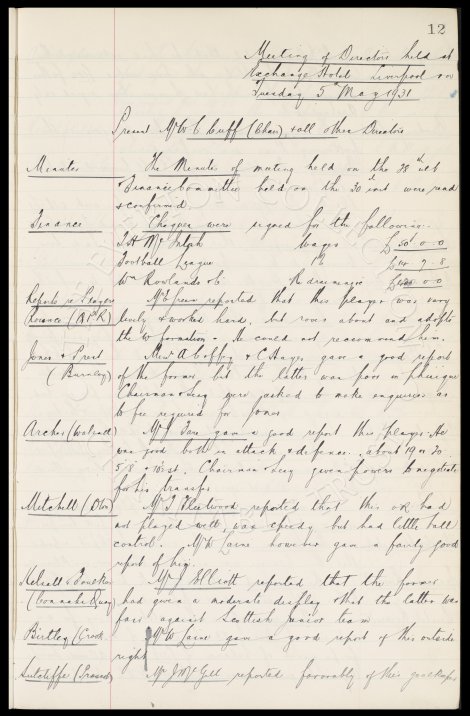 12
Meeting of Directors held at
Exchange Hotel Liverpool on
Tuesday 5th May 1931
Present Mr W C Cuff (Chair) & all other Directors
Minutes The Minutes of meeting held on the 28th ult
& Finance Committee held on the 30th inst were read
& confirmed.
Finance Cheques were signed for the following:-
J H McIntosh Wages £50 0 0
Football League £14 7 8
Wm Rowlands Co. Re drainages 0 0
Reports re Players Mr E Green reported that this player was very
(B P R) lively & worked hard, but roves about and adopts
the W formation & He could not recommend him.
Jones & Prest Messrs A Coffey & C Hayes gave a good report
(Burnley) of the former but the latter was poor in physique
Chairman & Secy were asked to make enquiries as
to fee required for Jones
Archer (Walsall) Mr J Fare gave a good report this player. He
was good both in attack & defence. about 19 or 20.
5/8 & 10 st. Chairman & Secy given powers to negotiate
for his transfer
Mitchell Mr T Fleetwood reported that this OR had
not played well, was speedy but had little ball
control. Mr W Laine however gave a fairly good
report of him.
Mr J Elliott reported that the former
(Connahs Quay) had given a moderate display & that the latter was
fair against Scottish junior team
Birtley (Crook Mr W Laine gave a good report of this outside
right
Sutcliffe Mr J McGill reported favorably of this goalkeeper